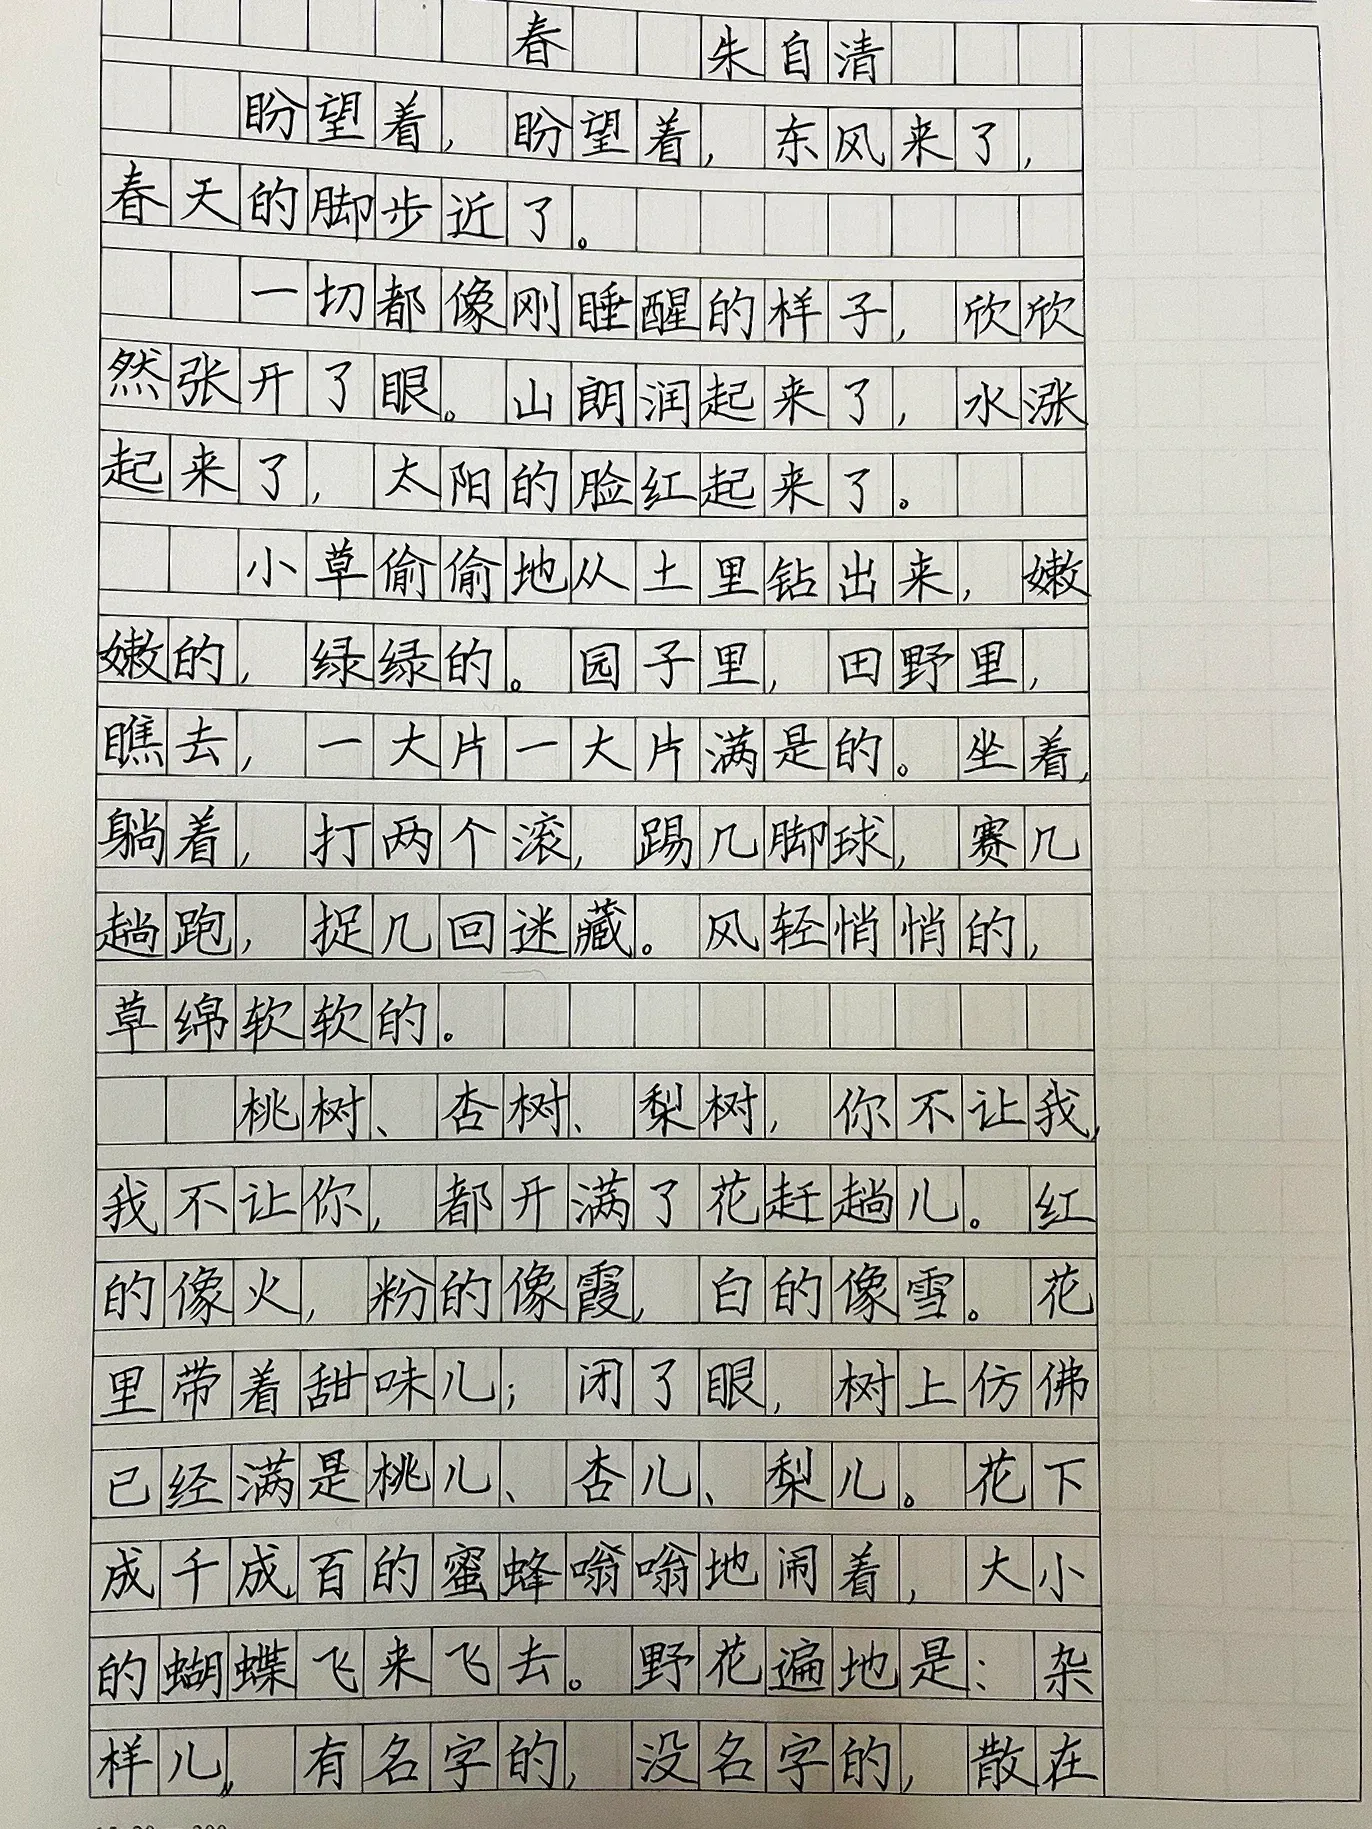 春 朱自清
盼望着，盼望着，东风来了，
春天的脚步近了。
一切都像刚睡醒的样子，欣欣
然张开了眼。山朗润起来了，水涨
起来了，太阳的脸红起来了。
小草偷偷地从土里钻出来，嫩
嫩的，绿绿的。园子里，田野里，
瞧去，一大片一大片满是的。坐着，
躺着，打两个滚，踢几脚球，赛几
趟跑，捉几回迷藏。风轻悄悄的，
草绵软软的。
桃树、杏树、梨树，你不让我，
我不让你，都开满了花赶趟儿。红
的像火，粉的像霞，白的像雪。花
里带着甜味儿；闭了眼，树上仿佛
已经满是桃儿、杏儿、梨儿。花下
成千成百的蜜蜂嗡嗡地闹着，大小
的蝴蝶飞来飞去。野花遍地是：杂
样儿，有名字的，没名字的，散在